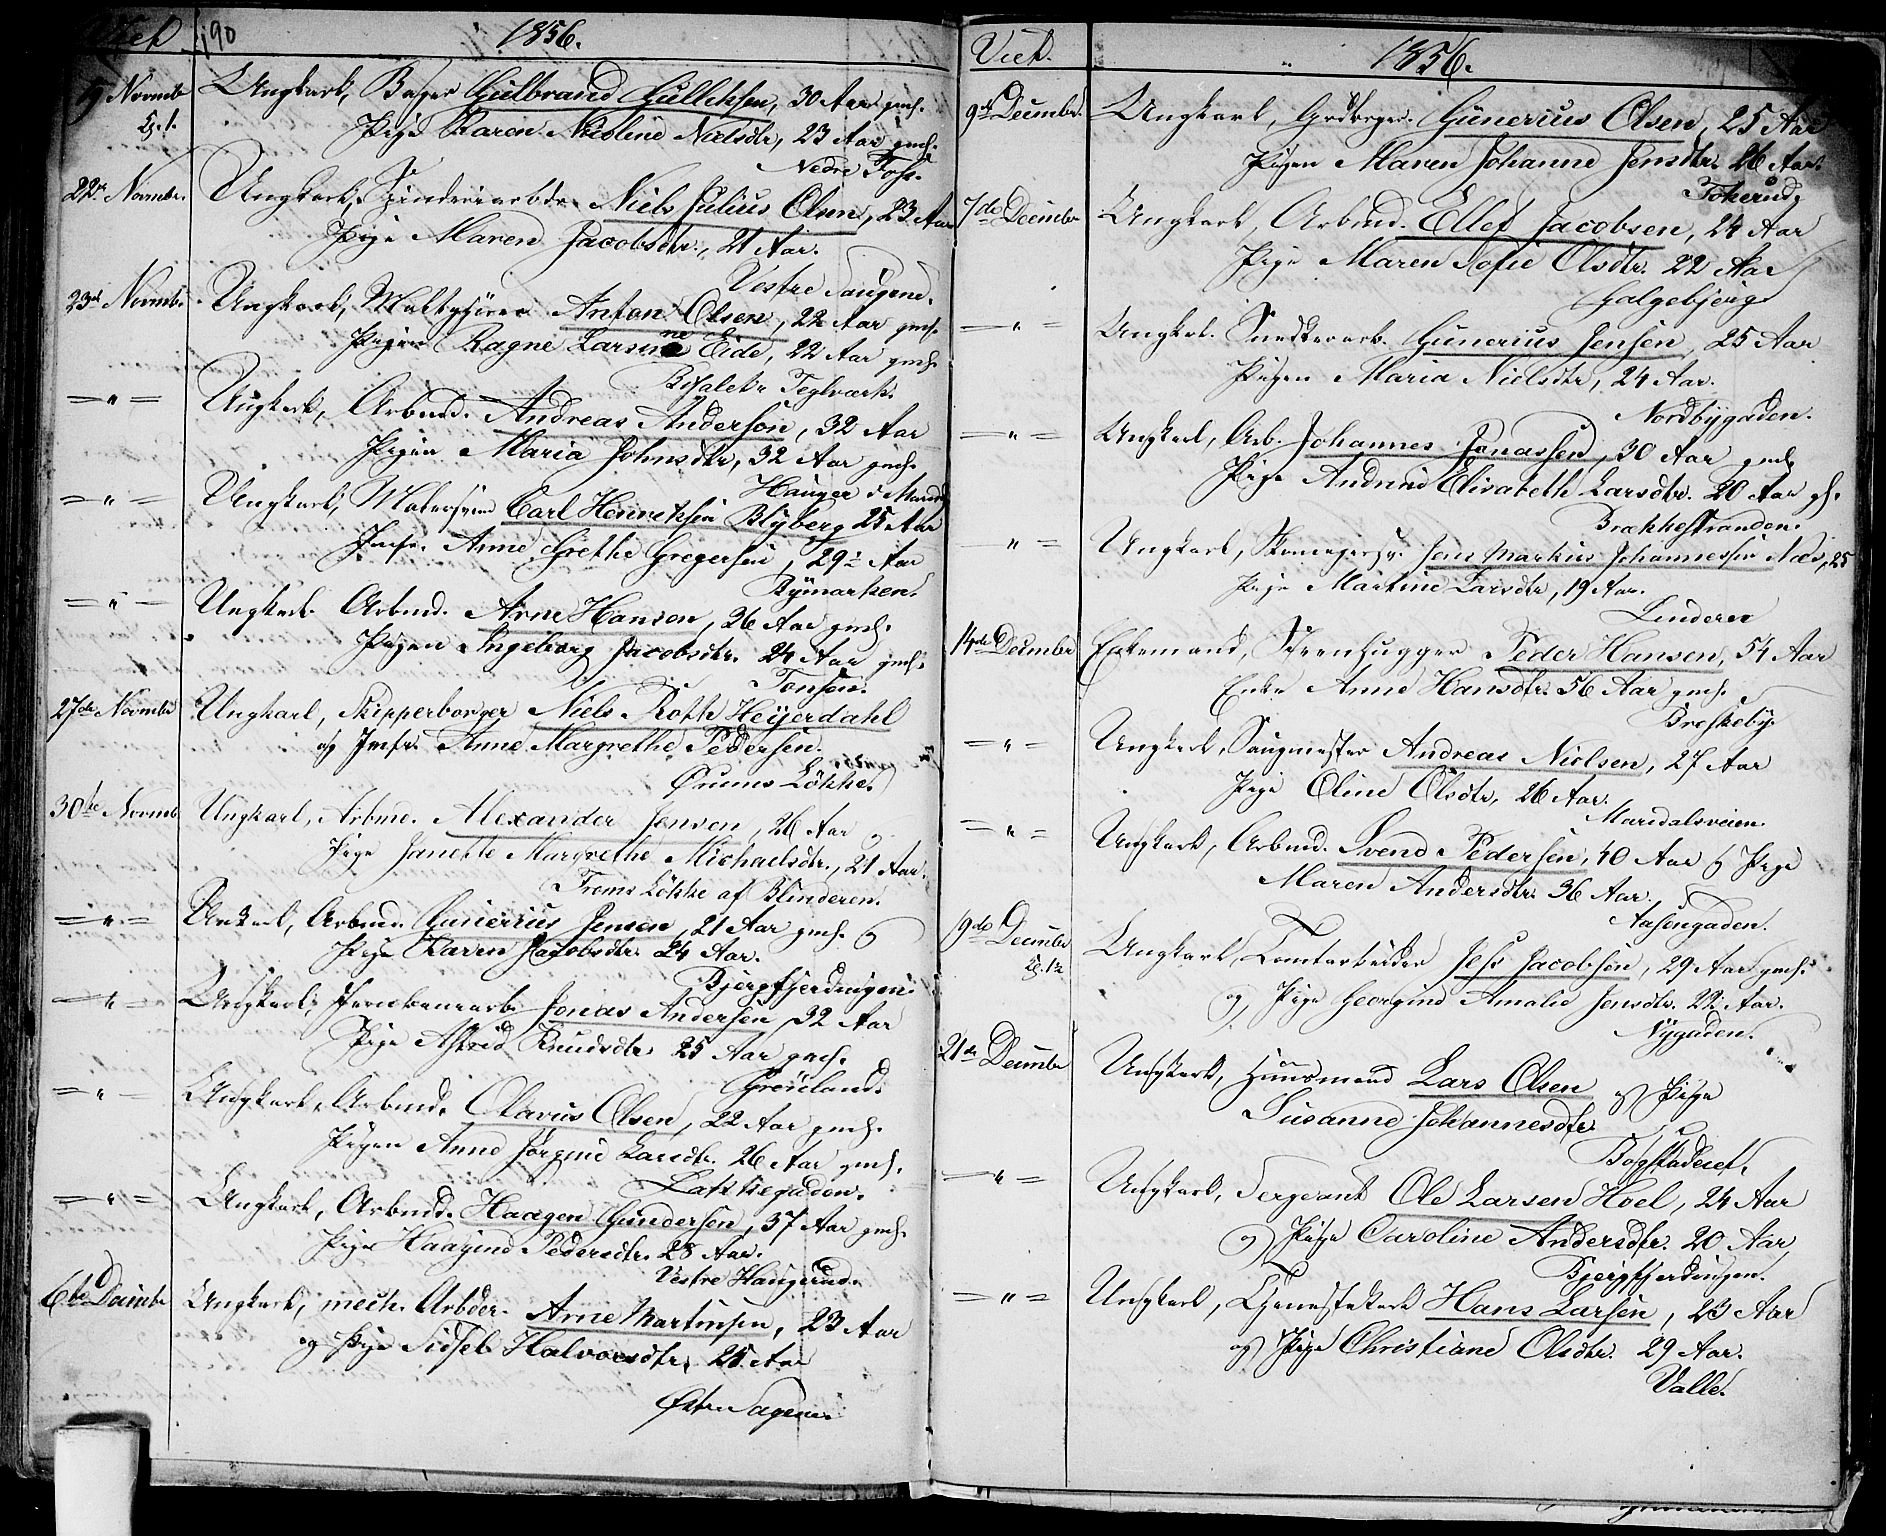 Viet 190 1856.
9 Novmbr Ungkarl, Bager Gulbrand Gulliksen, 30 Aar gmh.
Kl. 1. Pige Karen Nicoline Nielsdtr, 23 Aar gmh.
Nedre Foss.
22de Novmbr. Ungkarl, Spinderiarbdr. Niels Julius Olsen, 23 Aar
Pige Maren Jacobsdtr., 21 Aar.
Vestre Saugene.
23de Novmbr. Ungkarl, Anton Olsen, 22 Aar gmh.
Pigen Ragne Larsine Eide, 22 Aar gmh.
Teglværk.
="= Ungkarl, Arbmd. Andreas Anderson, 32 Aar
Pigen Maria Johnsdtr, 32 Aar gmh.
Hauger i
="= Ungkarl, Malersvend Carl Henriksen Blyberg 25 Aar
Jmfr. Anne Grethe Gregersen, 29 Aar
Bymarken.
="= Ungkarl. Arbmd. Arne Hansen, 26 Aar gmh.
Pigen Ingeborg Jacobsdtr. 24 Aar gmh.
Tonsen.
27de Novmbr Ungkarl, Skipperborger Niels Roth Heyerdahl
og Jmfr. Anne Margrethe Pedersen.
Ørums Løkke.
30te Novmb Ungkarl, Arbmd. Alexander Jensen, 26 Aar
Pige Janette Margrethe Michaelsdtr., 21 Aar.
Froms Løkke af Blinderen.
="= Unkarl, Arbmd. Gunerius Jensen, 21 Aar gmh. og
Pige Karen Jacobsdtr. 24 Aar.
Bjergfjerdingen.
="= Ungkarl, Jernbanearb. Jonas Andersen, 32 Aar
Pige Astrid Knudsdtr. 25 Aar gmh.
Grønland.
="= Ungkarl, Arbmd. Olavus Olsen, 22 Aar gmh.
Pigen Anne Jørgine Larsdtr. 26 Aar gmh.
Lakkegaden.
="= Ungkarl, Arbmd. Haagen Gundersen, 37 Aar gmh.
Pige Haagine Pedersdtr. 28 Aar.
Vestre Haugerud.
6te Decmbr Ungkarl, mech. Arbder. Arne Martinsen, 23 Aar
og Pige Sidsel Halvorsdtr, 25 Aar
Østre Sagene.
Viet. 1856.
9de Decmbr. Ungkarl, Gunerius Olsen, 25 Aar
Pigen Maren Johanne Jensdtr. 26 Aar.
Tokerud.
7de Decmbr Ungkarl, Arbmd. Ellef Jacobsen, 24 Aar
Pige Maren Sofie Olsdtr. 22 Aar
Galgebjerg.
="= Ungkrl. Snedkerarb. Gunerius Jensen, 25 Aar
Pigen Maria Nielsdtr, 24 Aar.
Nordbygaden.
="= Ungkarl, Arb. Johannes Jonassen, 30 Aar gmh.
Pige Andrine Elisabeth Larsdtr. 20 Aar gh.
Brækkestranden.
="= Ungkarl, Skomagersv. Jens Markus Johannessen Næs, 25
Pige Martine Larsdtr, 19 Aar.
Linderen
14de Decmber Enkemand, Steenhugger Peder Hansen, 54 Aar
Enke Anne Hansdtr. 56 Aar gmh.
Breskeby.
="= Ungkarl, Saugmester Andreas Nielsen, 27 Aar
Pige Oline Olsdtr, 26 Aar.
Maridalsveien.
="= Ungkarl, Arbmd. Svend Pedersen, 40 Aar og Pige
Maren Andersdtr. 36 Aar.
Aasengaden.
19de Decmbr Ungkarl, Tomtarbeider Jess Jacobsen, 29 Aar gmh.
Kl. 1½ og Pige Georgine Amalie Jensdtr. 22 Aar.
Nygaden.
21de Decmbr Ungkarl, Huusmand Lars Olsen og Pige
Susanne Johannesdtr.
Bogstadeiet.
="= Ungkarl, Sergeant Ole Larsen Hoel, 24 Aar
og Pige Caroline Andersdtr. 20 Aar
Bjergfjerdingen.
="= Ungkarl, Tjenestekarl Hans Larsen, 23 Aar
og Pige Christiane Olsdtr. 29 Aar.
Valle.